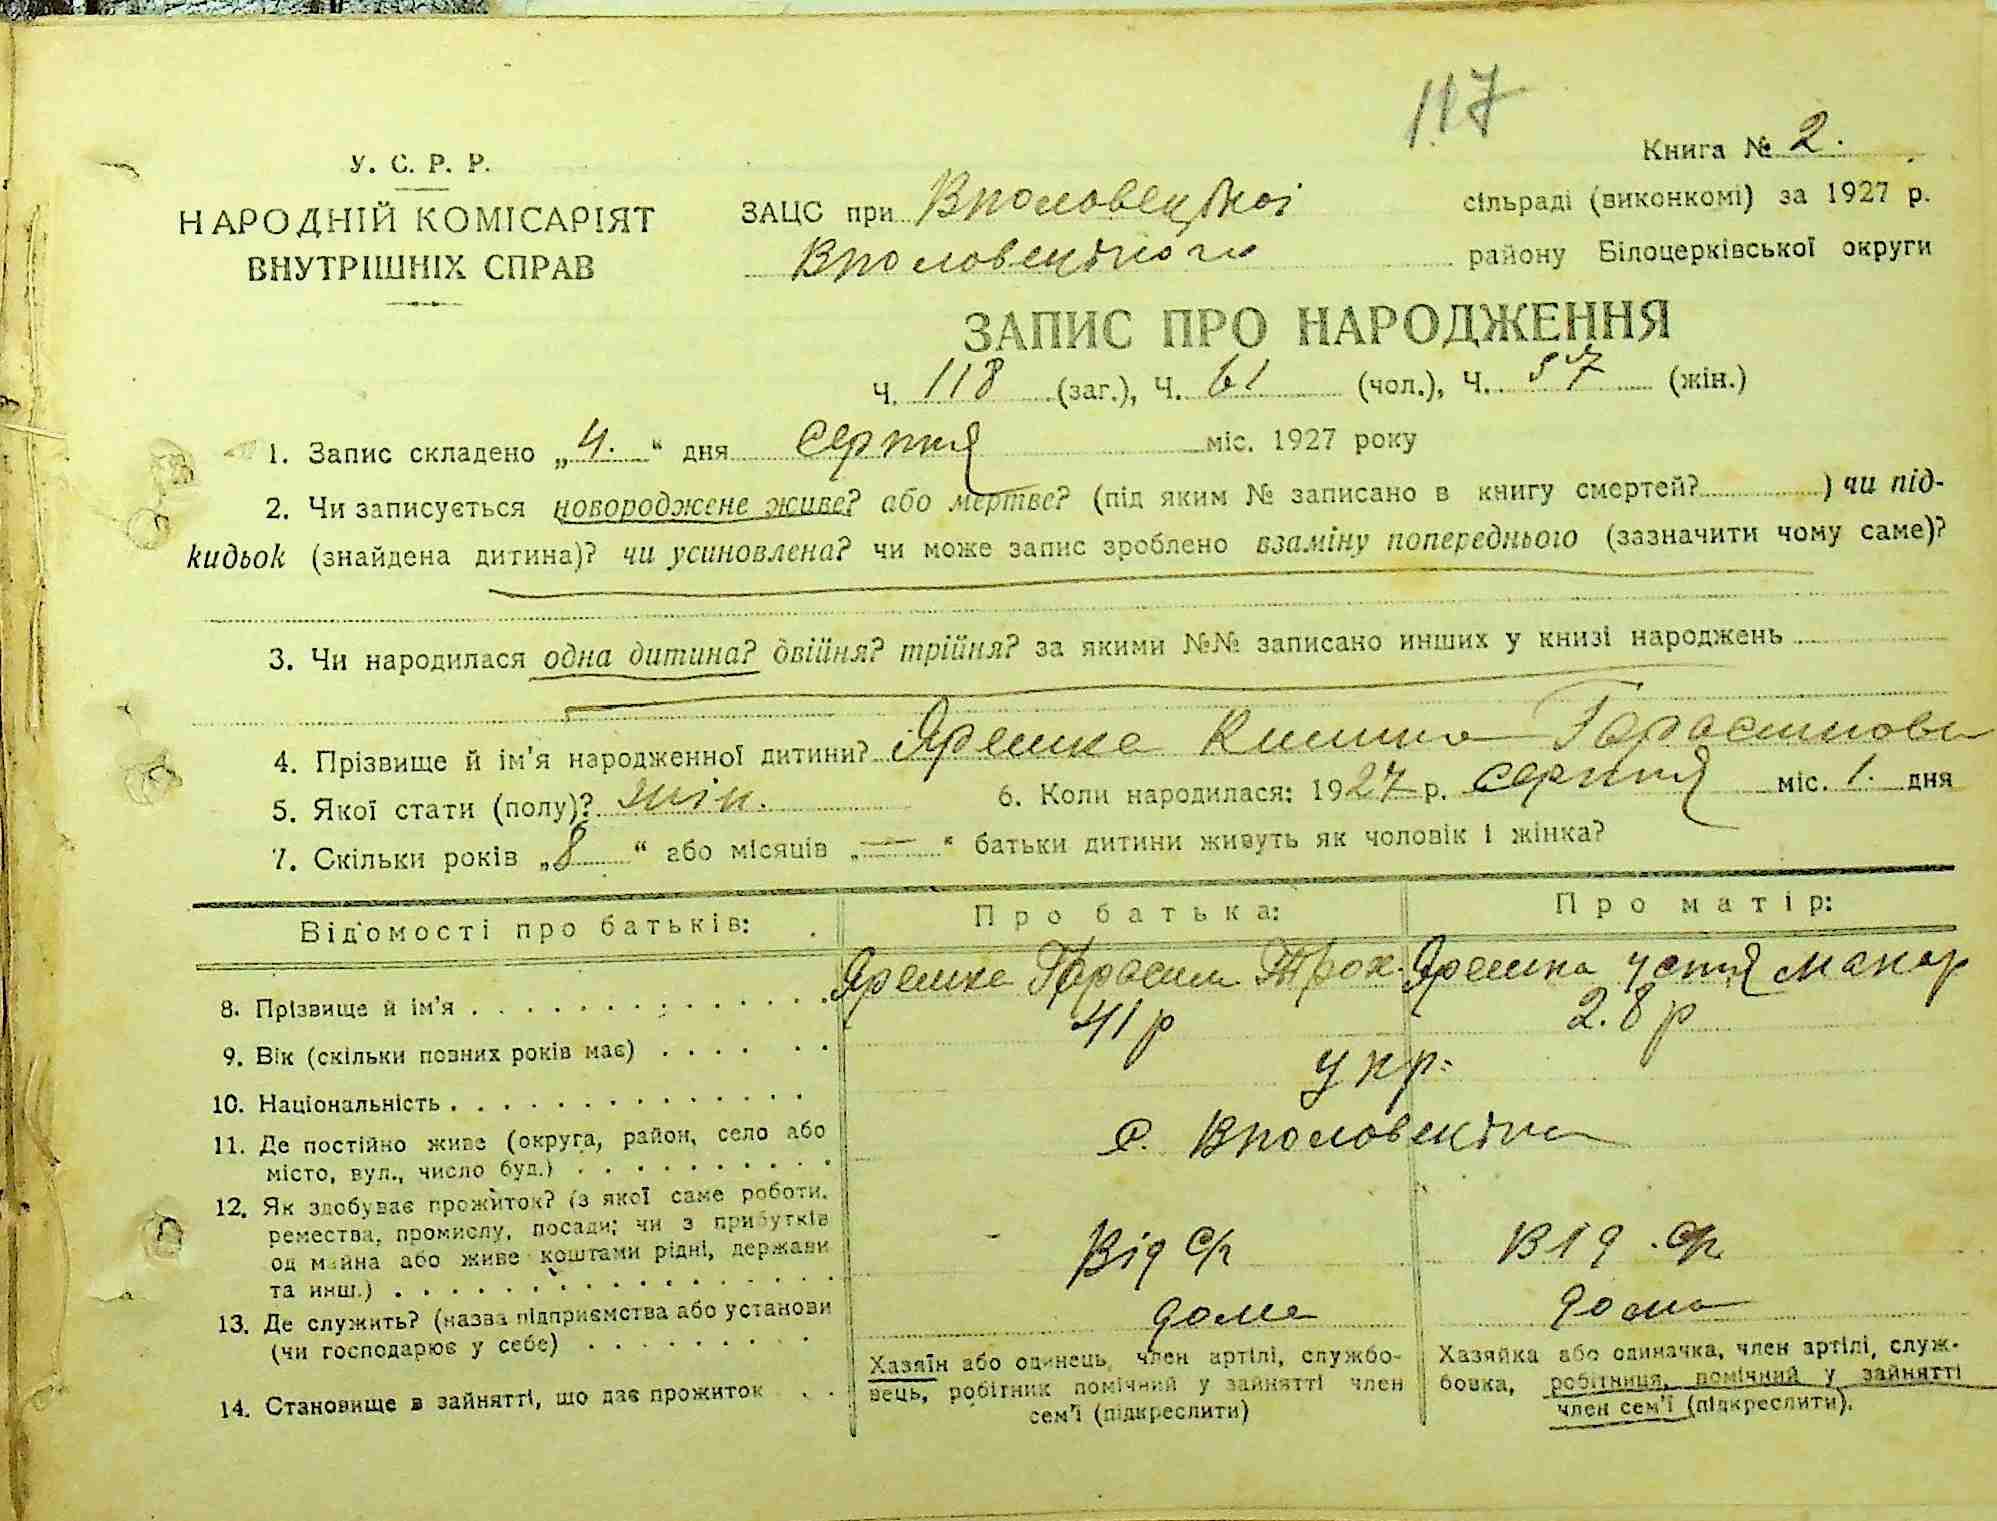 117
Книга № 2.
У. С. Р. Р.
НАРОДНІЙ КОМІСАРІЯТ
ВНУТРІШНІХ СПРАВ
ЗАЦС при Вполовецькоі сільраді (виконкомі) за 1927 р.
Вполовецького району Білоцерківської округи
ЗАПИС ПРО НАРОДЖЕННЯ
Ч. 118 (заг.), Ч. 61 (чол.), Ч. 57 (жін.)
1. Запис складено „4.“ дня серпня міс. 1927 року
2. Чи записується новороджене живе? або мертве? (під яким № записано в книгу смертей? ) чи під-
кидьок (знайдена дитина)? чи усиновлена? чи може запис зроблено взаміну попереднього (зазначити чому саме)?
3. Чи народилася одна дитина? двійня? трійня? за якими №№ записано инших у книзі народжень
4. Прізвище й ім'я народженної дитини? Ярешко Герасимовн
5. Якої стати (полу)? жін. 6. Коли народилася: 1927 р. серпня міс. 1. дня
7. Скільки років „8“ або місяців „—“ батьки дитини живуть як чоловік і жінка?
Відомості про батьків: Про батька: Про матір:
8. Прізвище й ім'я Ярешко Герасим Трох. Ярешко Устя Макар
9. Вік (скільки повних років має) 41 р 28 р
10. Національність укр.
11. Де постійно живе (округа, район, село або
місто, вул., число буд.) с. Вполовецьке
12. Як здобуває прожиток? (з якої саме роботи,
ремества, промислу, посади; чи з прибутків
од майна або живе коштами рідні, держави
та инш.) Від с/г Від с/г
13. Де служить? (назва підприємства або установи
(чи господарює у себе) дома дома
14. Становище в зайнятті, що дає прожиток
Хазяїн або одинець, член артілі, службо-
вець, робітник помічний у зайнятті член
сем'ї (підкреслити)
Хазяйка або одиначка, член артілі, служ-
бовка, робітниця, помічний у зайнятті
член сем'ї (підкреслити).